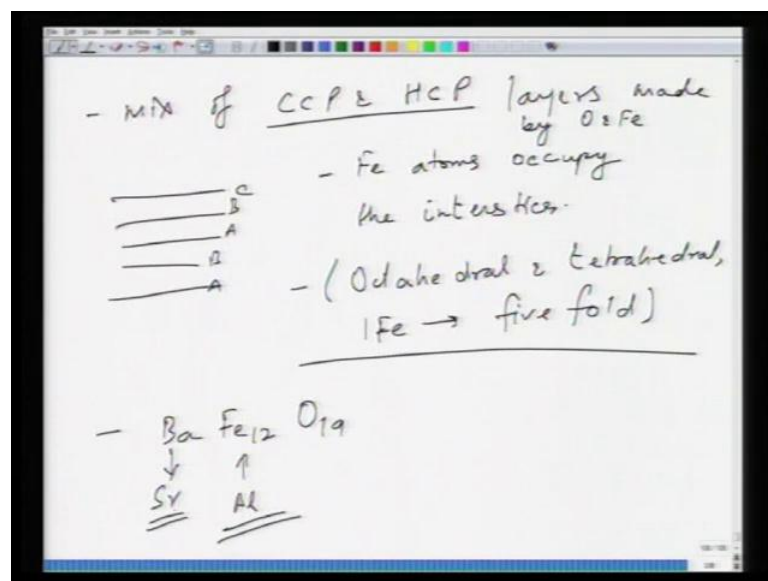 - Mix of CCP & HCP layers made
by O & Fe
- Fe atoms occupy
the interstices.
C
B
A
B
A
- (Octahedral & tetrahedral,
1Fe → five fold)
- Ba Fe12 O19
↓ ↑
Sr Al